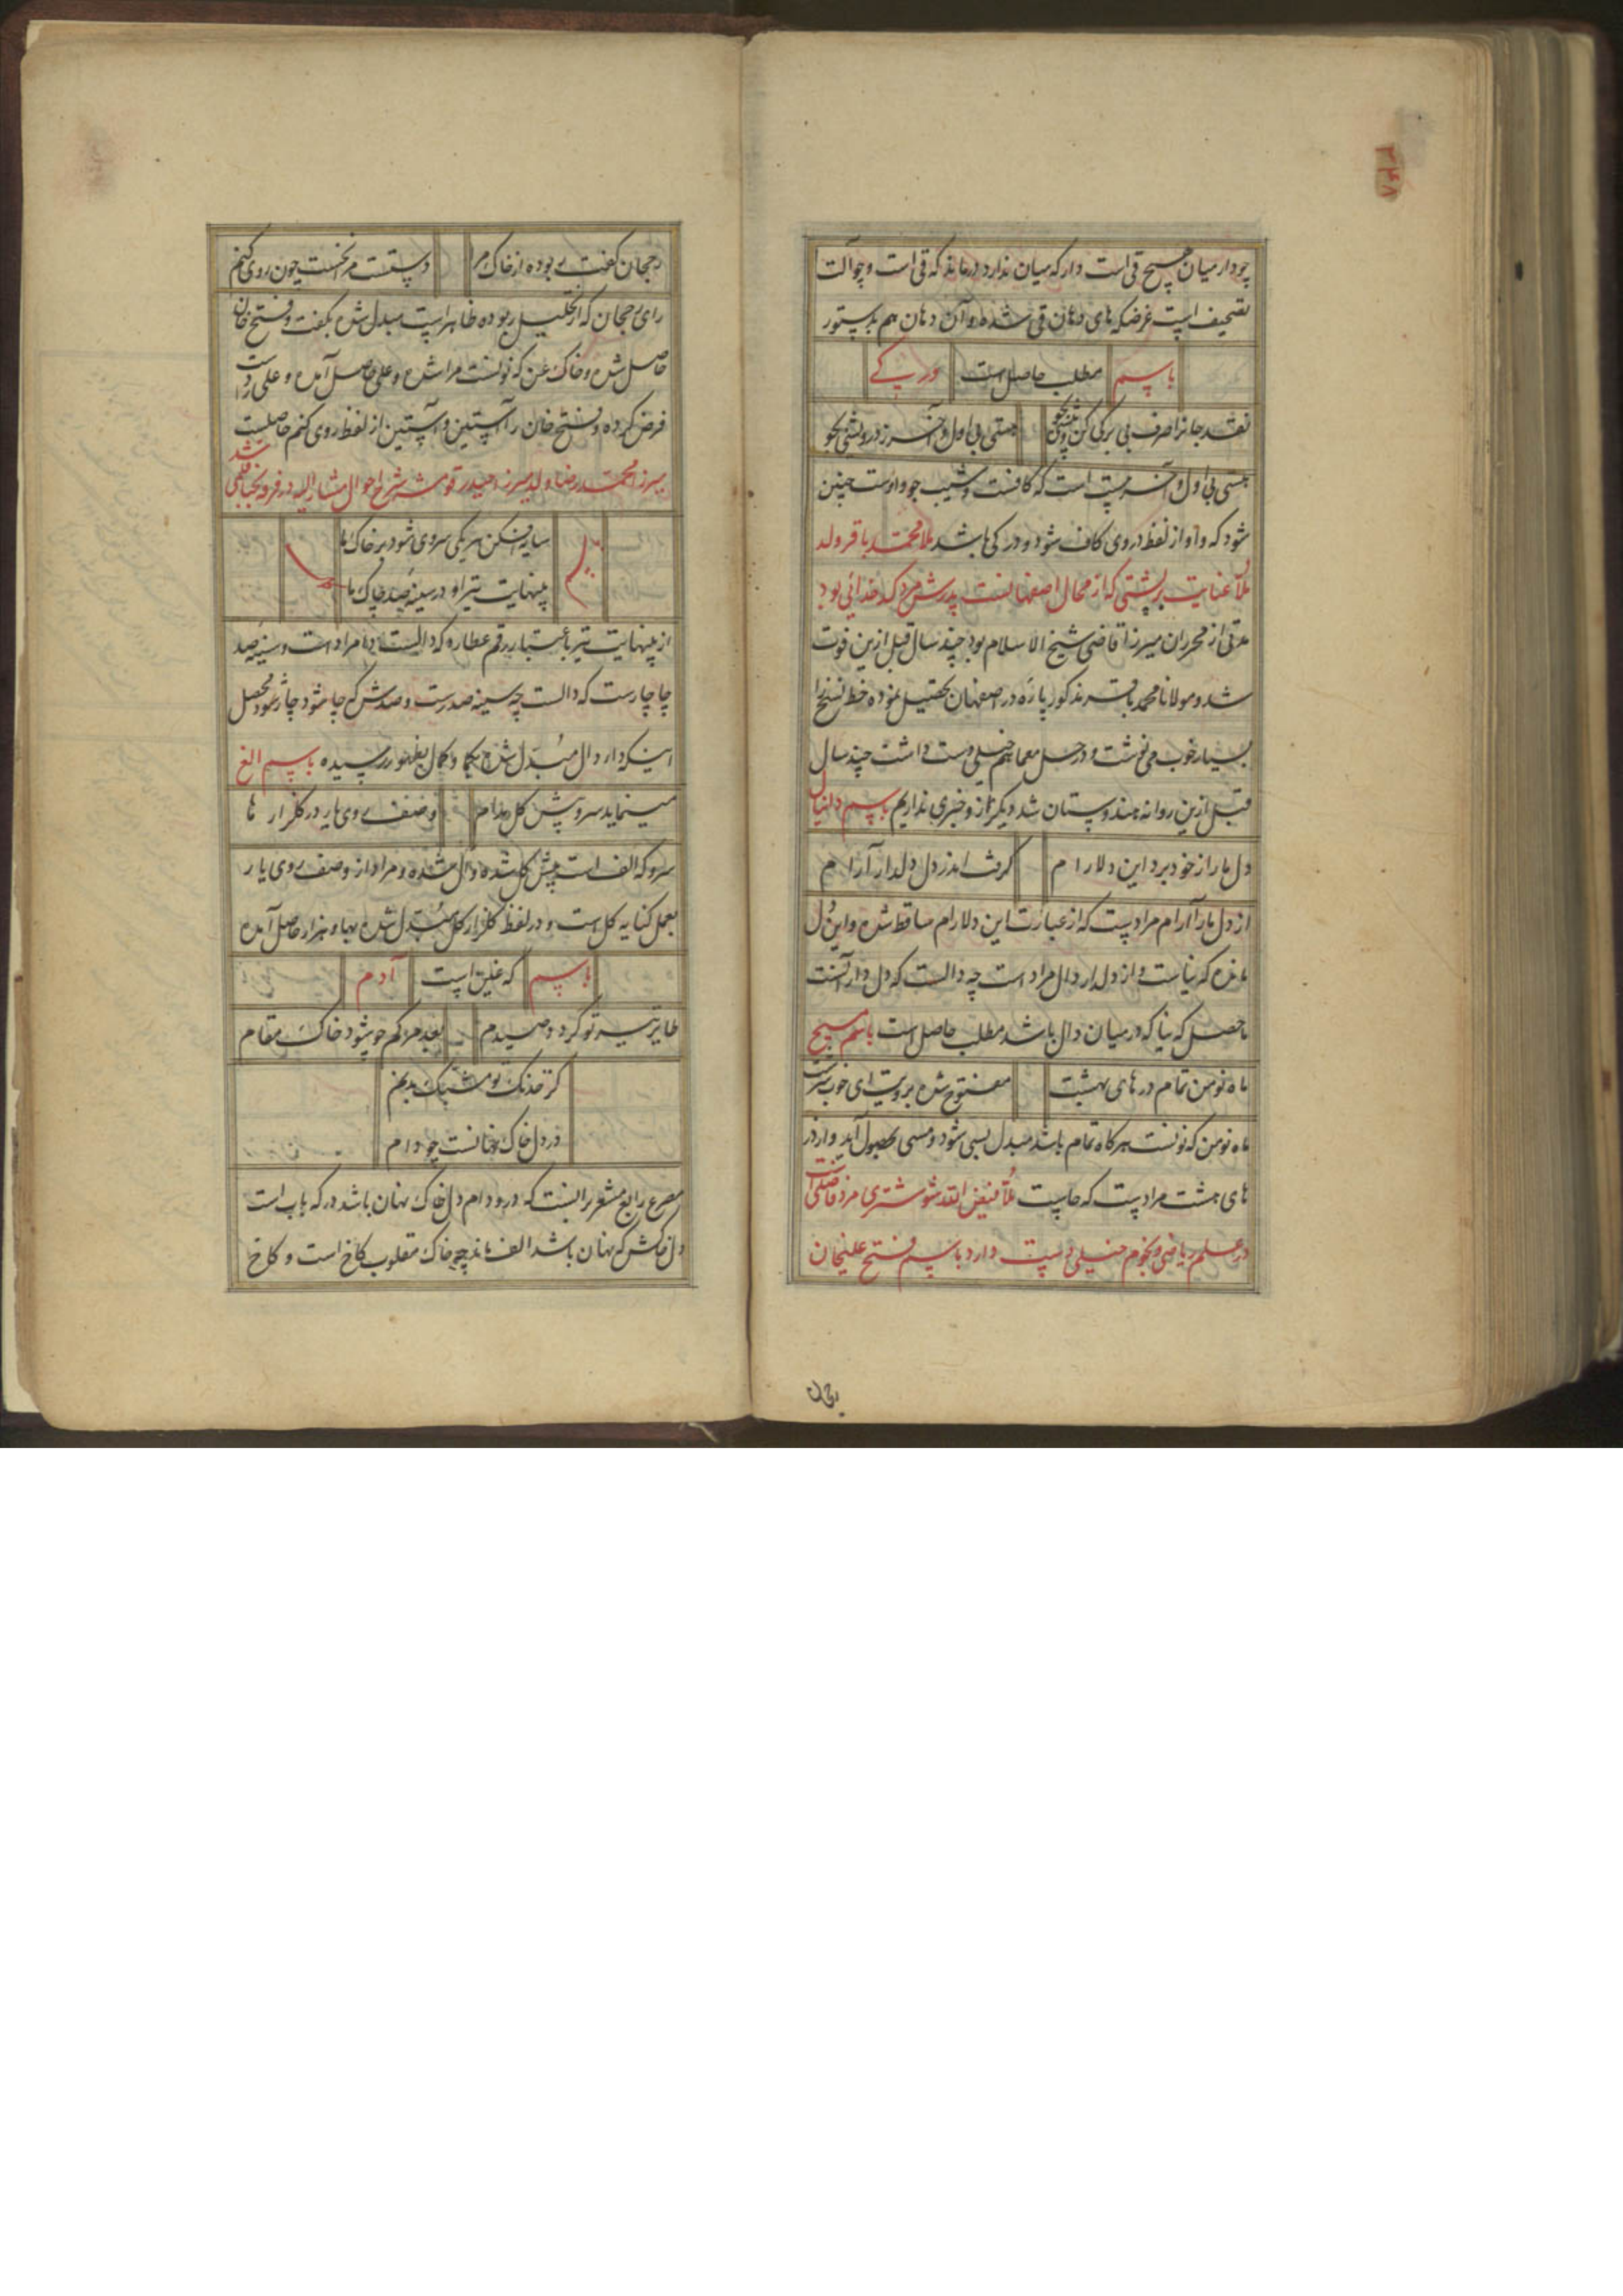 ۳۴۸
چو دار میان هیچ قی است دار که میان ندارد در ماند که قی است و چو آلت
تصحیف است غرضکه های دهان قی شده و آن دهان هم بدستور
مطلب حاصل است باسم
نقد جانرا صرف بی برکی کن
هستی بی اول و آخر ز درویشی بجو
هستی بی اول و آخر است که کافست و شیب جو واوست چنین
شود که واو از لفظ در روی کاف شود و در کی باشد ملا محمد باقر ولد
ملا عنایت که از محال اصفهانست پدرش مرد کدخدائی بود
مدتی از محرران میرزا قاضی شیخ الاسلام بود چند سال قبل ازین فوت
شد و مولانا محمد باقر مذکور پاره در اصفهان تحصیل نموده خط نسخ را
بسیار خوب می نوشت و در حل معما هم خیلی دست داشت چند سال
قبل ازین روانه هندوستان شد دیگر از و خبری نداریم باسم دانیال
دل ما را از خود برد این دلارام
گرفت اندر دل دلدار آرام
از دل ما را آرام مراد است که از عبارت این دلارام ساقط شده و این دل
مانده که نیاست و از دلدار دال مراد است چه دالست که دل دار آنست
ماحصل که نیا که در میان دال باشد مطلب حاصل است باسم مسیح
ماه نو من تمام در های بهشت
مفتوح شده برویت ای خوب سرشت
ماه نو من که نونست هر کاه تمام باشد مبدل بسی شود و مسی بحصول آید و از در
های هشت مراد است که حاست ملا فیض الله شوشتری مرد فاضلی است
در علم ریاضی و نجوم خیلی دست دارد باسم فتح علیخان
رجحان
رجحان کفت ربوده از خاک مرا
دستت مرا نخست چون روی کنم
رای رجحان که از تحلیل ربوده ظاهر است مبدل شده بکفت و فتح خان
حاصل شده و خاک عن که نونست مرا شده و علی حاصل آمده و علی را دست
فرض کرده و فتح خان را آستین و آستین از لفظ روی کنم حاصلست
میرزا محمد رضا ولد میرزا حیدر قومشه شرح احوال مشار الیه در فرقه نجبا قلمی شد
سایه افکن هر یکی سروی شود بر خاک ما
بینهایت تیر او در سینه صد چاک ما
از بینهایت تیر باعتبار رقم عطارد که دالست دا مراد است و سینه صد
چا چارست که دالست چه سینه صد رست و صدش که چا شود چار شود محصل
اینکه دار دال مبدل شده بکما و کمال بظهور رسیده باسم الغ
مینماید سرو پیش کل مدام
وصف روی یار در کلزار ها
سرو که الف است پیش کل شده و ال شده و مراد از وصف روی یار
بعمل کنایه کل است و در لفظ کلزار کل مبدل شده بها و هزار حاصل آمده
باسم که غین است آدم
طایر تیر تو کرد و صیدم
بعد مرکم چو شود خاک مقام
کر خدنک تو مشبک بدنم
در دل خاک نهانست چو دام
مصرع رابع مشعر برانست که در و دام دل خاک نهان باشد در که باب است
دل خاکش که نهان باشد الف ماند چه خاک مقلوب کاخ است و کاخ